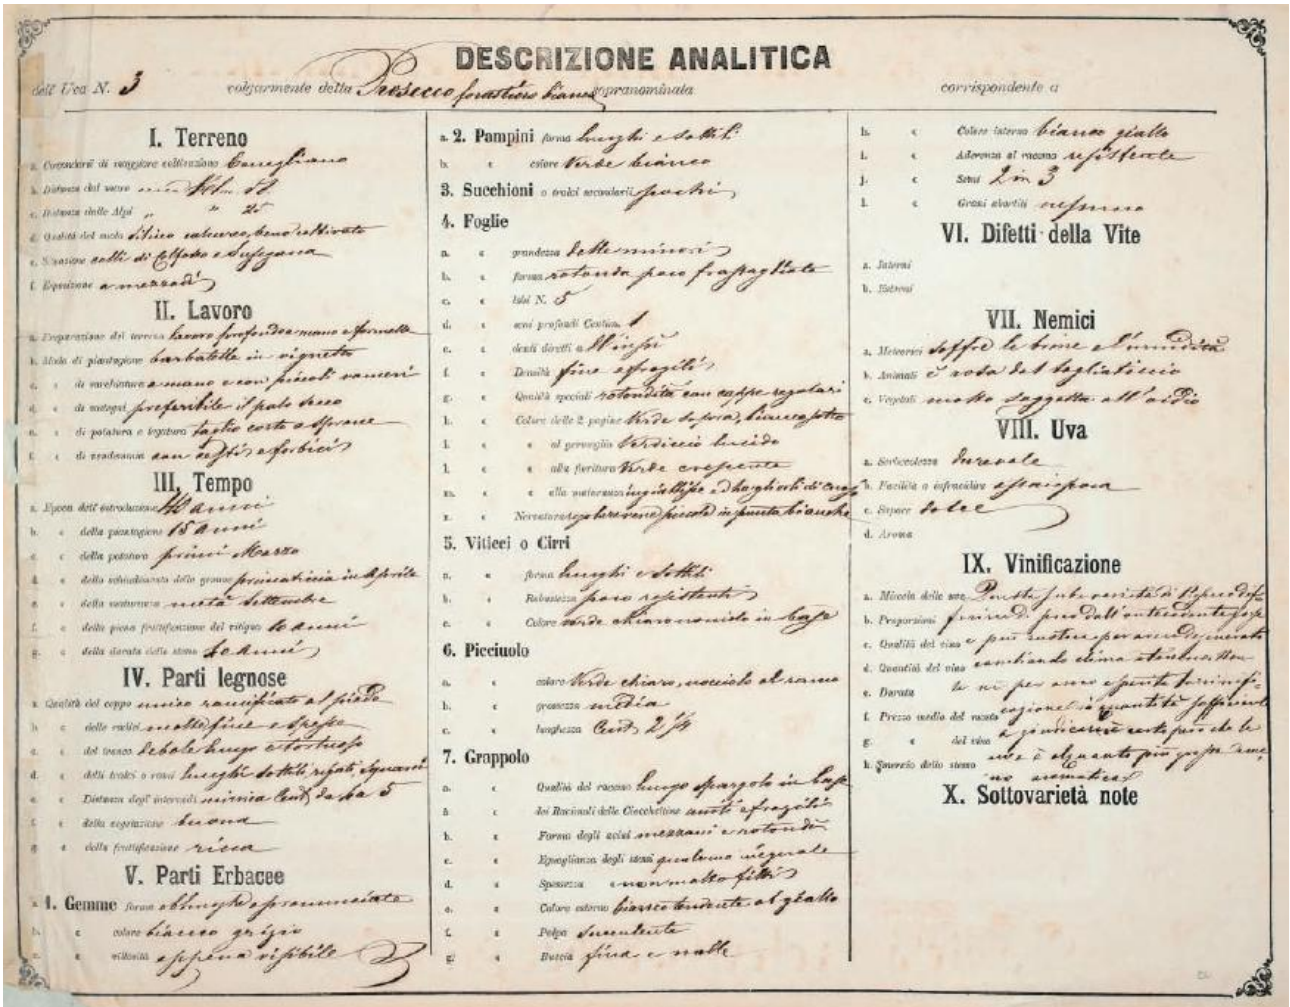 DESCRIZIONE ANALITICA
dell'Uva N. 3 volgarmente della Prosecco forastiero bianco sopranominata corrispondente a
I. Terreno
a. Circondarii di maggiore coltivazione Conegliano
b. Distanza dal mare Kilm 52
c. Distanza dalle Alpi „ „ 25
d. Qualità del suolo calcareo, bene coltivato
e. Situazione colli di Colfosco e Susegana
f. Esposizione a mezzodì
II. Lavoro
a. Preparazione del terreno lavoro profondo a mano e formelle
b. Modo di piantagione barbatelle in vigneto
c. « di sarchiatura a mano e con piccoli
d. « di sostegni preferibile il palo secco
e. « di potatura e legatura taglio corto a sperone
f. « di vendemmia con cesti e forbici
III. Tempo
a. Epoca dell'introduzione 40 anni
b. « della piantagione 15 anni
c. « della potatura primi Marzo
d. « dello schiudimento delle gemme primaticcia in Aprile
e. « della maturanza metà Settembre
f. « della piena fruttificazione del vitigno 10 anni
g. « della durata dello stesso anni
IV. Parti legnose
a. Qualità del ceppo unico ramificato al piede
b. « delle radici molte, fine e spesse
c. « del tronco debole lungo e tortuoso
d. « delli tralci o rami lunghi sottili, rigati,
e. « Distanza degl'internodi minima Cent. da 4 a 5
f. « della vegetazione buona
g. « della fruttificazione ricca
V. Parti Erbacee
a. 1. Gemme forma oblunghe e pronunciate
b. « colore bianco grigio
c. « villosità appena visibile
a. 2. Pampini forma lunghi e sottili
b. « colore verde bianco
3. Succhioni o tralci secondarii pochi
4. Foglie
a. « grandezza delle minori
b. « forma rotonda poco frastagliata
c. « lobi N. 5
d. « seni profondi Centim. 1
e. « denti diretti a all'insù
f. « Densità fine e fragili
g. « Qualità speciali rotondità con regolari
h. « Colore delle 2 pagine verde sopra, bianco sotto
i. « « al germoglio verdiccio lucido
l. « « alla fioritura verde crescente
m. « « alla maturanza ingiallisce ed ha gli orli di
n. « Nervatura regolare vene piccole in punta bianche
5. Viticci o Cirri
a. « forma lunghi e sottili
b. « Robustezza poco resistenti
c. « Colore verde chiaro in base
6. Picciuolo
a. « colore verde chiaro, nocciola al ramo
b. « grossezza media
c. « lunghezza Cent. 2 1/4
7. Grappolo
a. « Qualità del racemo lungo spargolo in base
b. « dei Racimoli delle Ciocchettine e fragili
b. « Forma degli acini mezzani e rotondi
c. « Eguaglianza degli stessi qualcuno ineguale
d. « Spessezza non molto fitti
e. « Colore esterno bianco tendente al giallo
f. « Polpa succulente
g. « Buccia fina e molle
h. « Colore interno bianco giallo
i. « Aderenza al racemo resistente
j. « Semi 2 in 3
l. « Grani abortiti nessuno
VI. Difetti della Vite
a. Interni
b. Esterni
VII. Nemici
a. Meteorici soffre le brine e l'umidità
b. Animali è rosa dal tagliaticcio
c. Vegetali molto soggetta all'oidio
VIII. Uva
a. Serbevolezza durevole
b. Facilità a infracidire assai poca
c. Sapore dolce
d. Aroma
IX. Vinificazione
a. Miscela delle uve Questa subvarietà di Prosecco
b. Proporzioni poco dall'antecedente
c. Qualità del vino e può inoltre
d. Quantità del vino cambiando clima
e. Durata per ora
f. Prezzo medio del racemo in quantità
g. « del vino a giudicarne certo però che le
h. Smercio dello stesso uve è alquanto più
no aromatica
X. Sottovarietà note